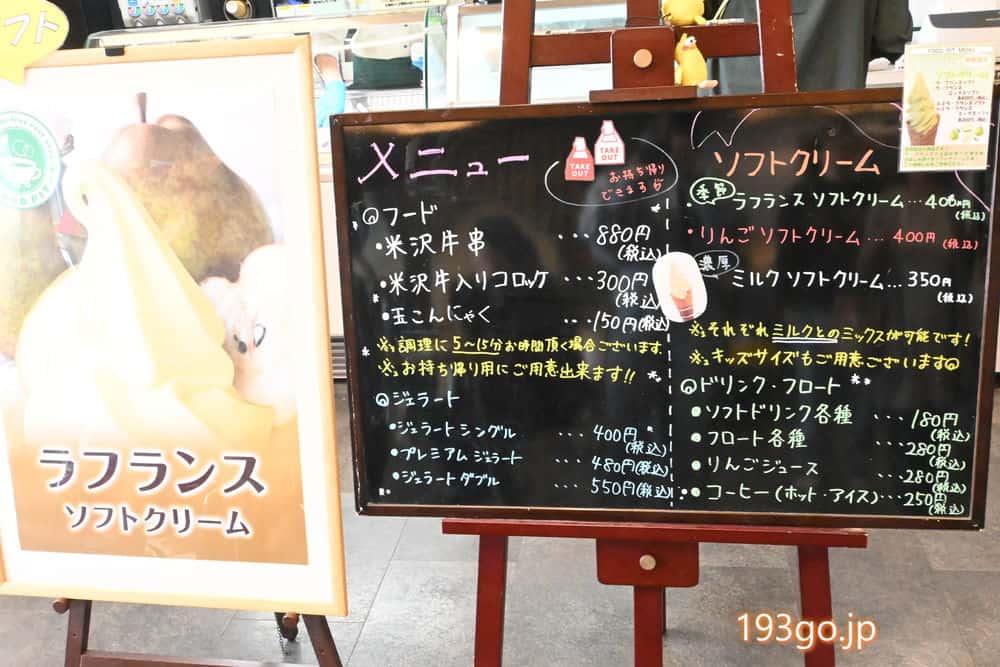 フト
ラフランス
ソフトクリーム
メニュー
TAKE OUT
TAKE OUT
お持ち帰り
できます
フード
・米沢牛串 ・・・880円
(税込)
・米沢牛入りコロッケ ・・・300円
(税込)
・玉こんにゃく ・・・150円(税込)
※調理に5〜15分お時間頂く場合ございます。
※お持ち帰り用にご用意出来ます!!
ジェラート
・ジェラートシングル ・・・400円
(税込)
・プレミアムジェラート ・・・480円(税込)
・ジェラートダブル ・・・550円(税込)
ソフトクリーム
季節 ラフランスソフトクリーム…400円
(税込)
・りんごソフトクリーム…400円(税込)
濃厚
ミルクソフトクリーム…350円
(税込)
※それぞれミルクとのミックスが可能です!
※キッズサイズもご用意ございます
ドリンク・フロート
・ソフトドリンク各種 ・・・180円
(税込)
・フロート各種 280円
(税込)
・りんごジュース ・・・280円
(税込)
・コーヒー(ホット・アイス)・・・250円
(税込)
ソフトクリーム
193go.jp